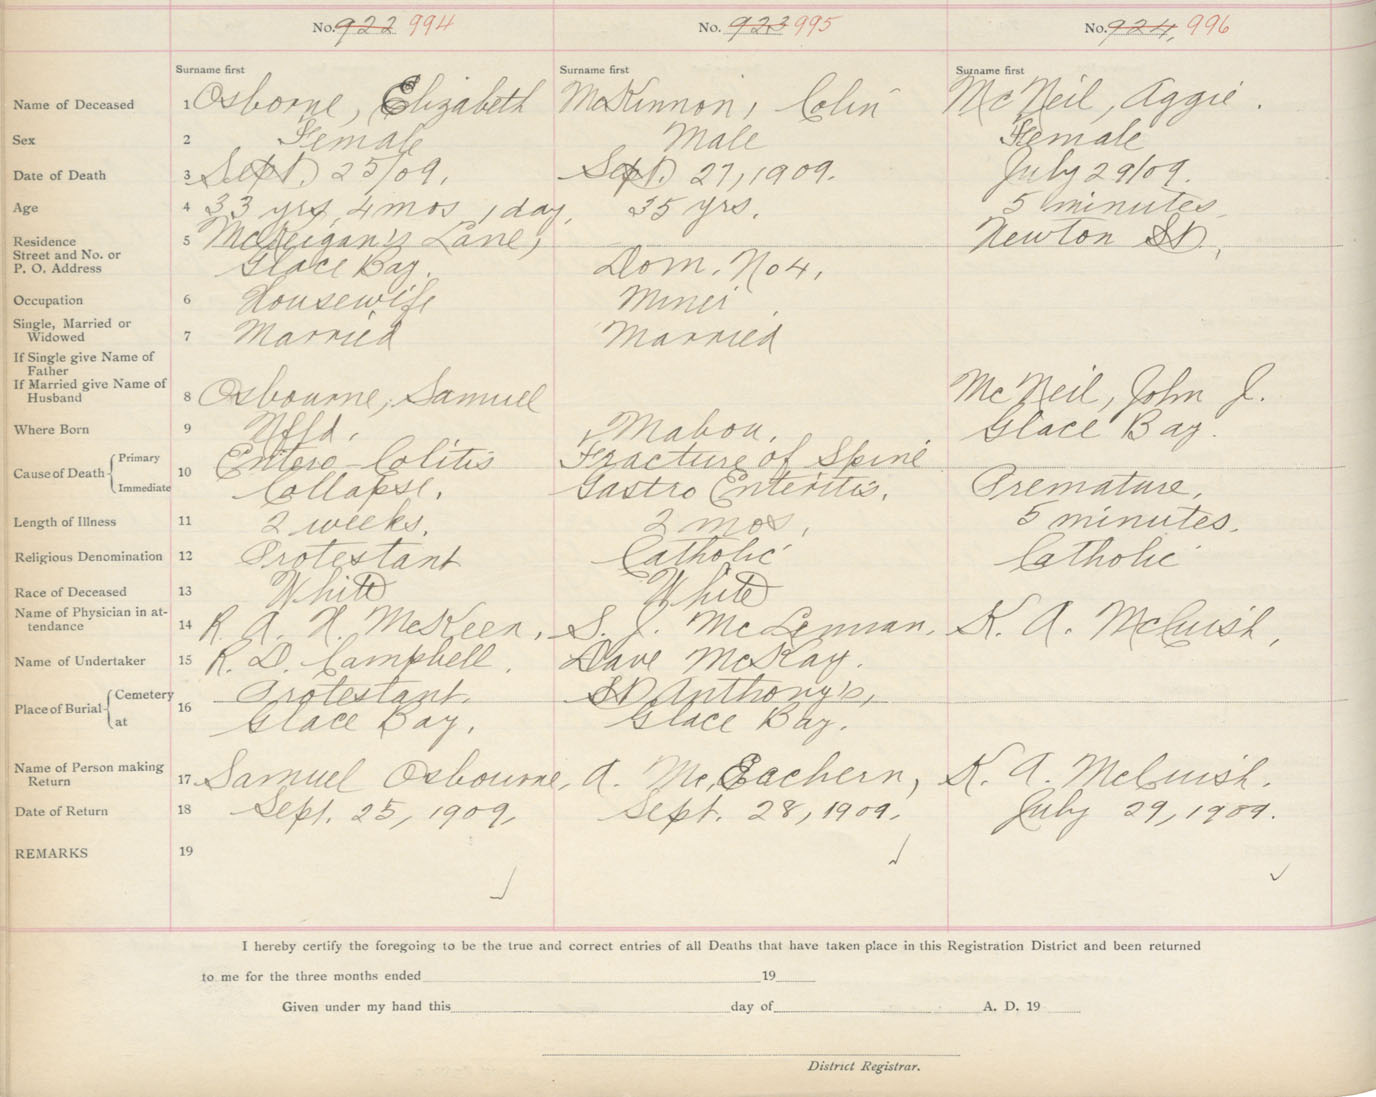 No. 922 994 No. 923 995 No. 924, 996
Surname first Surname first Surname first
Name of Deceased 1 Osborne, Elizabeth McKinnon, Colin McNeil, Aggie.
Sex 2 Female Male Female
Date of Death 3 Sept. 25/09. Sept. 27, 1909. July 29/09.
Age 4 33 yrs, 4 mos, 1 day, 35 yrs. 5 minutes.
Residence 5 Lane, Newton St,
Street and No. or
P. O. Address Glace Bay. Dom. No 4,
Occupation 6 Housewife Miner,
Single, Married or
Widowed 7 Married Married
If Single give Name of
Father
If Married give Name of
Husband 8 Osbourne, Samuel McNeil, John J.
Where Born 9 Nfld. Mabou, Glace Bay.
Cause of Death Primary 10 Entero-Colitis Fracture of Spine
Immediate Collapse. Gastro Enteritis. Premature,
Length of Illness 11 2 weeks. 2 mos, 5 minutes.
Religious Denomination 12 Protestant Catholic Catholic
Race of Deceased 13 White White
Name of Physician in at-
tendance 14 R. A. H. McKeen, S. J. McLennan, K. A. McCuish,
Name of Undertaker 15 R. D. Campbell. Dave McKay.
Place of Burial Cemetery 16 Protestant. St Anthony's,
at Glace Bay. Glace Bay.
Name of Person making
Return 17 Samuel Osbourne, A. McEachern, K. A. McCuish.
Date of Return 18 Sept. 25, 1909, Sept. 28, 1909. July 29, 1909.
REMARKS 19
I hereby certify the foregoing to be the true and correct entries of all Deaths that have taken place in this Registration District and been returned
to me for the three months ended 19
Given under my hand this day of A. D. 19
District Registrar.